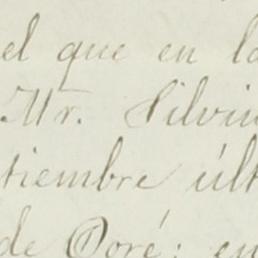 el que en la
Mr. Silvin
tiembre últ
de Doré: en